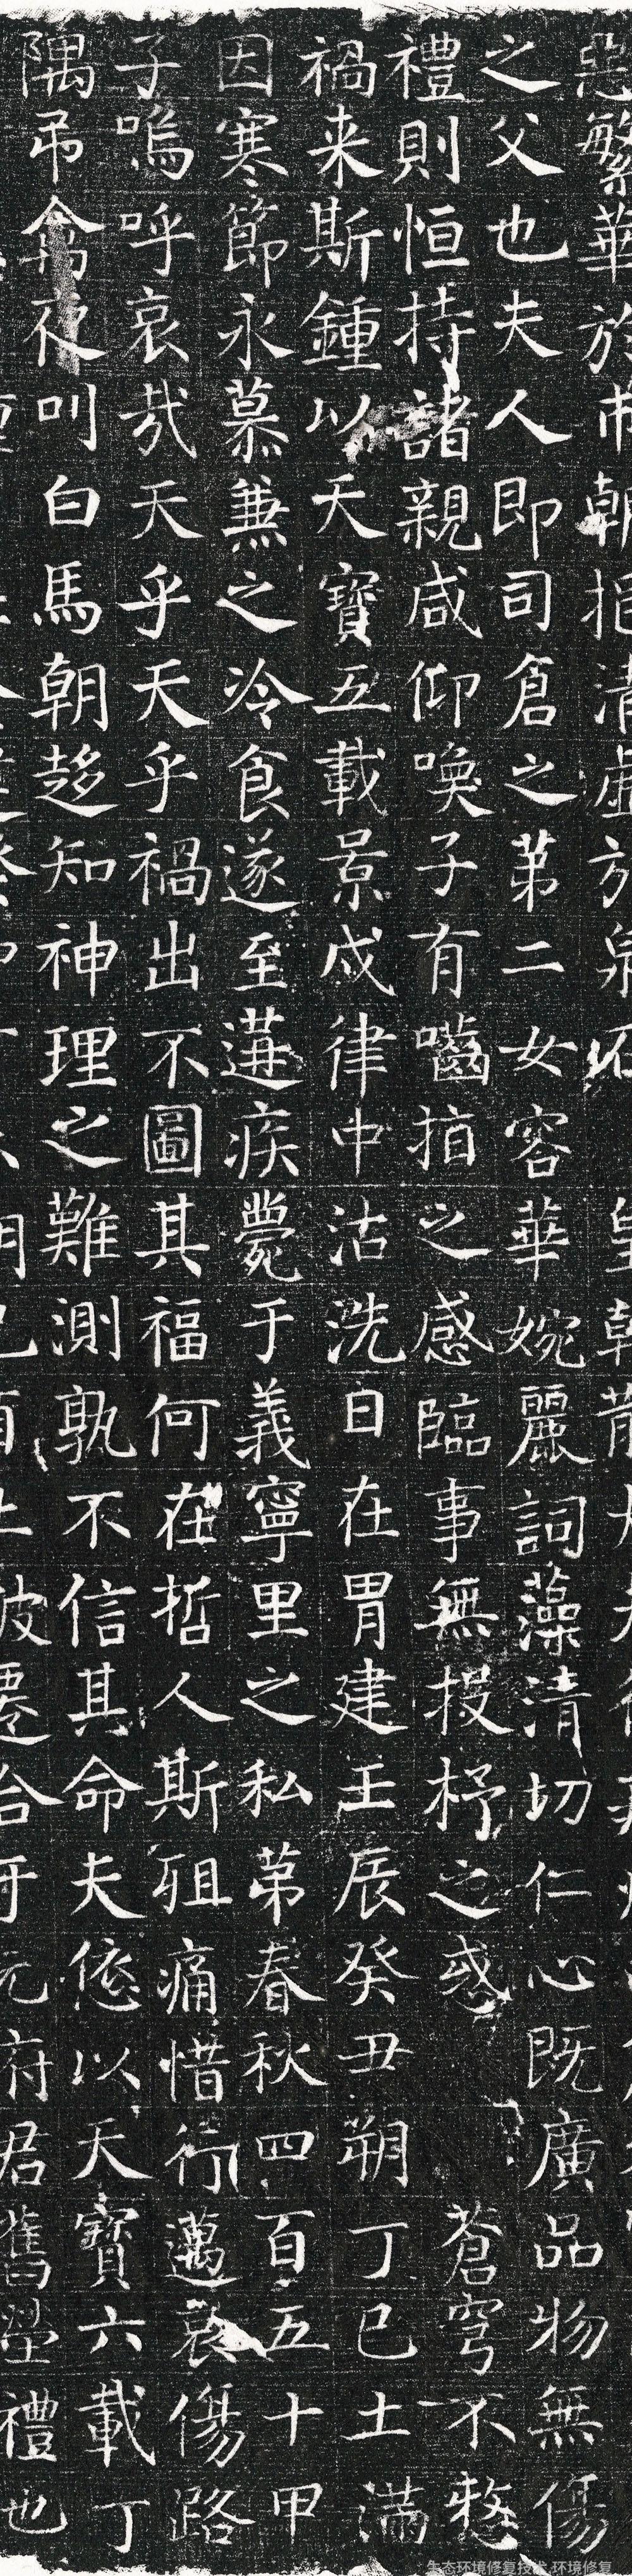 惡繁華於市朝挹清虛於泉石
之父也夫人即司倉之苐二女容華婉麗詞藻清切仁心既廣品物無傷
禮則恒持諸親咸仰喚子有嚙指之感臨事無投杼之惑蒼穹不憗
禍来斯鍾以天寶五載景戍律中沽洗日在胃建壬辰癸丑朔丁巳土滿
因寒節永慕兼之冷食遂至遘疾薨于義寧里之私苐春秋四百五十甲
子嗚呼哀哉天乎天乎禍出不圖其福何在哲人斯殂痛惜行邁哀傷路
隅吊禽夜叫白馬朝趍知神理之難測孰不信其命夫恡以天寶六載丁
府君舊塋禮也
生态环境修复技术 环境修复